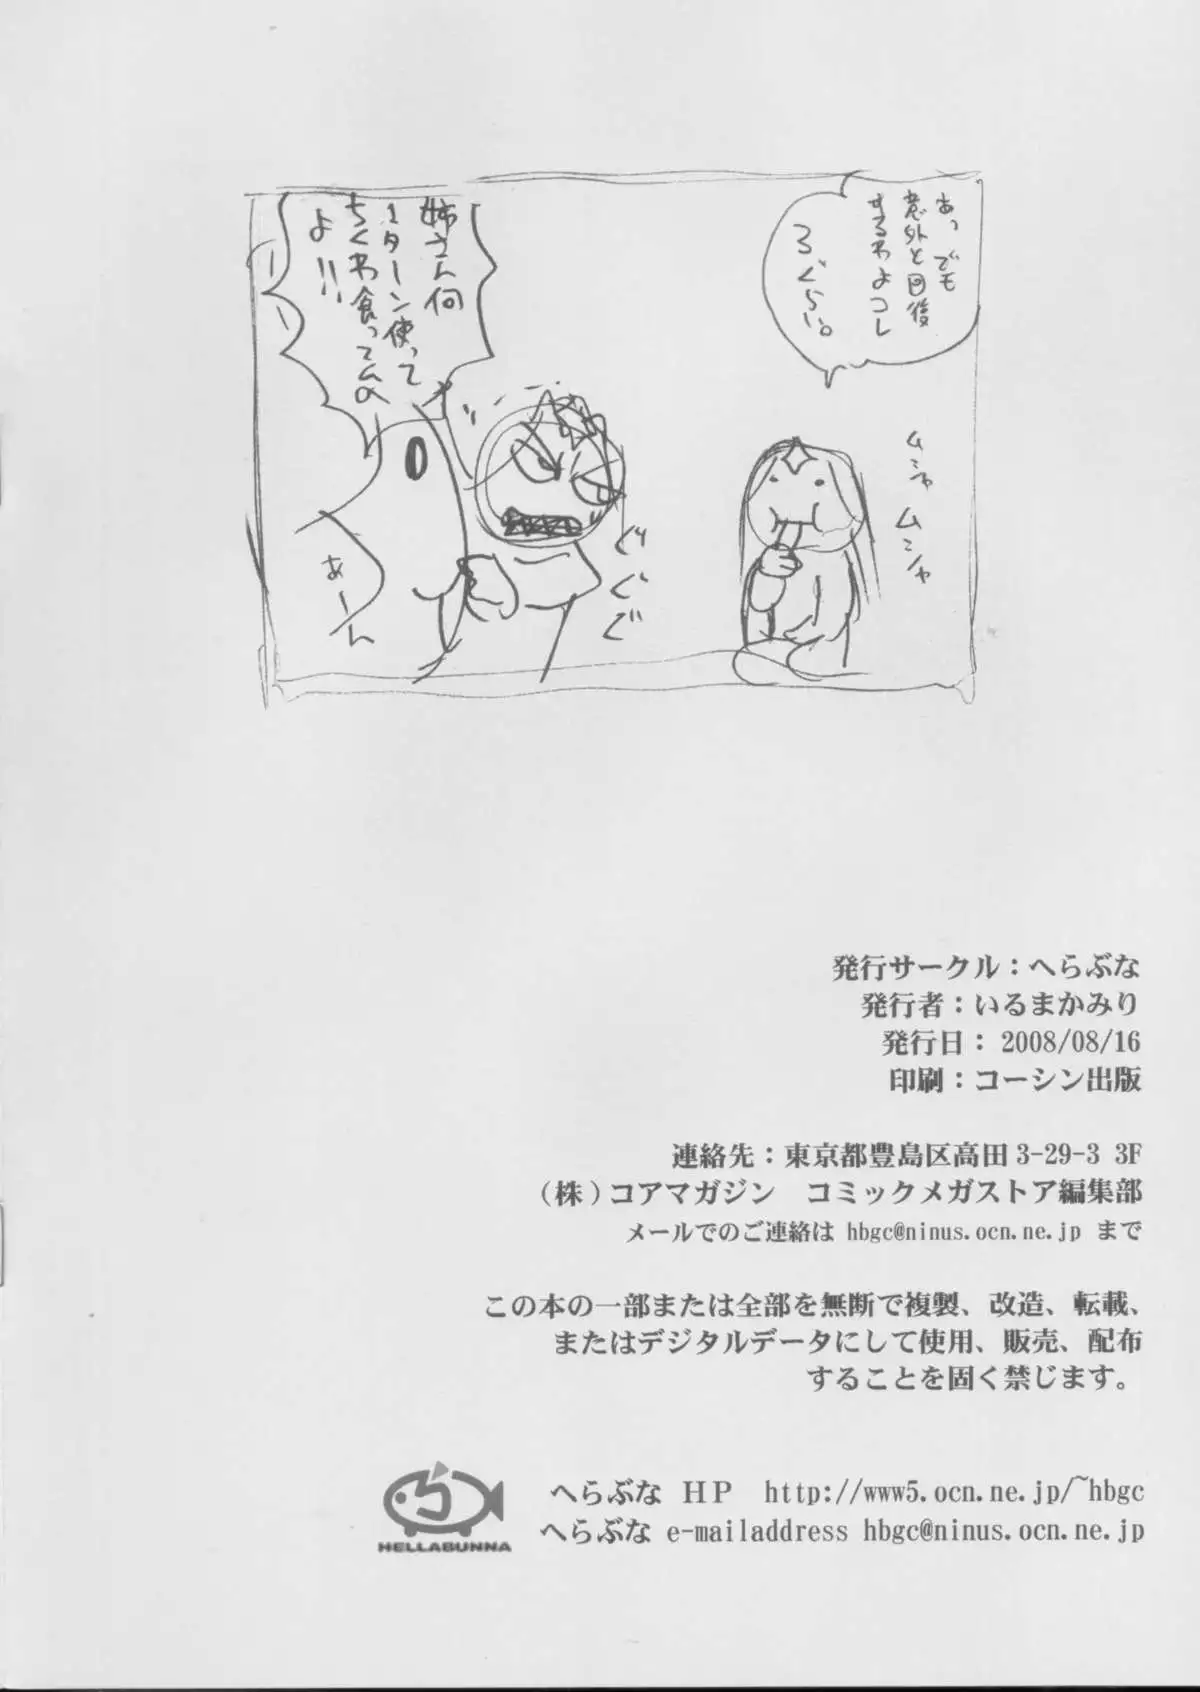 あっでも
意外と回復
するわよコレ
3ぐらい。
ムシャ
ムシャ
姉さん何
1ターン使って
ちくわ食ってんの
よ!!
ぐぐぐ
あーん
発行サークル：へらぶな
発行者：いるまかみり
発行日： 2008/08/16
印刷：コーシン出版
連絡先：東京都豊島区高田 3-29-3 3F
（株）コアマガジン　コミックメガストア編集部
メールでのご連絡は hbgc@ninus.ocn.ne.jp まで
この本の一部または全部を無断で複製、改造、転載、
またはデジタルデータにして使用、販売、配布
することを固く禁じます。
へらぶな HP http://www5.ocn.ne.jp/~hbgc
へらぶな e-mailaddress hbgc@ninus.ocn.ne.jp
HELLABUNNA